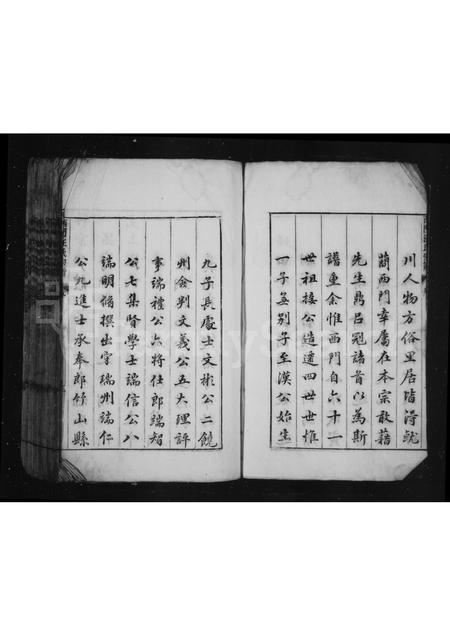 川人物方俗里居皆淂觧
蔄西門幸屬在本宗敢藉
先生鼎呂冠諸首以為斯
譜重余惟西門自六十一
世祖接公造遷四世世惟
一子無別子至漢公始生
九子長處士文彬公二饒
州僉判文義公五大理評
事端禮公六將仕郎端智
公七集賢學士端信公八
端明偹撰出守瑞州端仁
公九進士承奉郎竹山縣